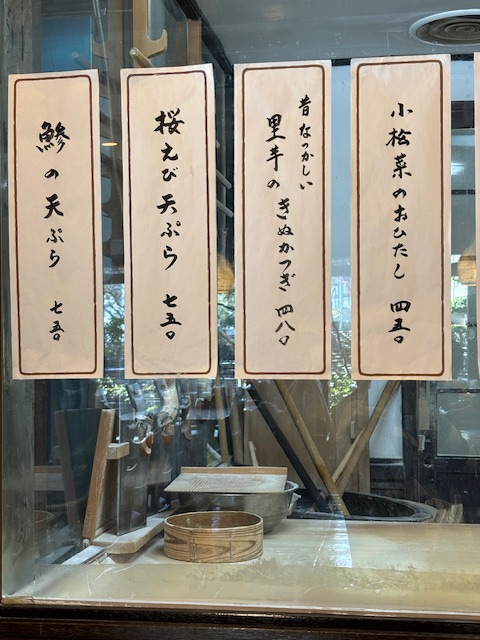 小松菜のおひたし 四五〇
昔なつかしい
里芋のきぬかつぎ 四八〇
桜えび天ぷら 七五〇
鯵の天ぷら 七五〇